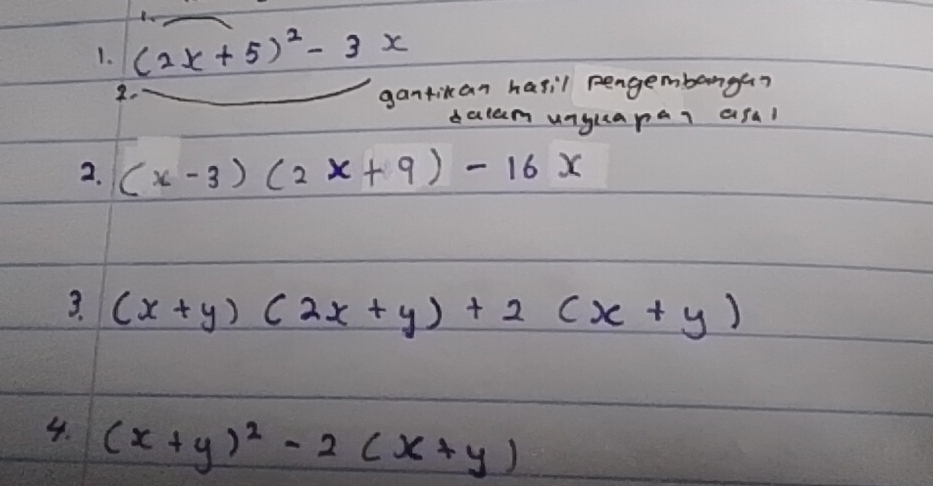 1.
1. (2x + 5)² - 3 x
2. gantikan hasil pengembangan
dalam ungkapan asal
2. (x - 3) (2 x + 9) - 16 x
3. (x + y) (2x + y) + 2 (x + y)
4. (x + y)² - 2 (x + y)